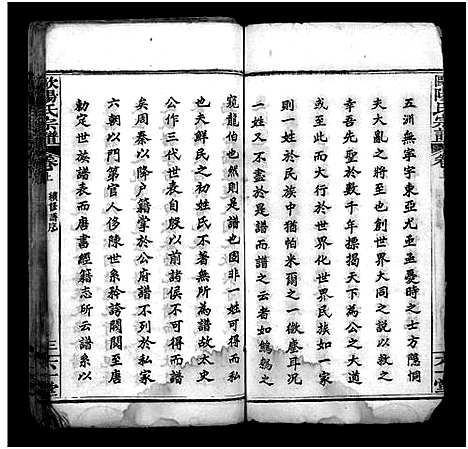 五洲無寧宇東亞尤岌岌憂時之士方隱恫
夫大亂之將至也創世界大同之說以救之
幸吾先聖於數千年操揭天下為公之大道
或者至此而大行於世界化世界民族如一家
則一姓於民族中猶帕米爾之一微塵耳況
一姓又不盡於是譜而譜之云者如鷦鷯之
窺龍伯也然則是譜也固非一姓之可得而私
也夫鮮民之初姓氏不著無所為譜故太史
公作三代世表自殷以前諸侯不可得而譜
矣周秦以降戶籍掌於公府譜不列於私家
六朝以門第官人侈陳世系矜誇閥閱至唐
勅定世族譜表而唐書經籍志所云譜系以
歐陽氏宗譜
卷上
續修譜序
三
六一堂